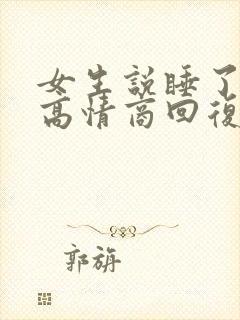 女生説睡了
高情商回復
郭旃